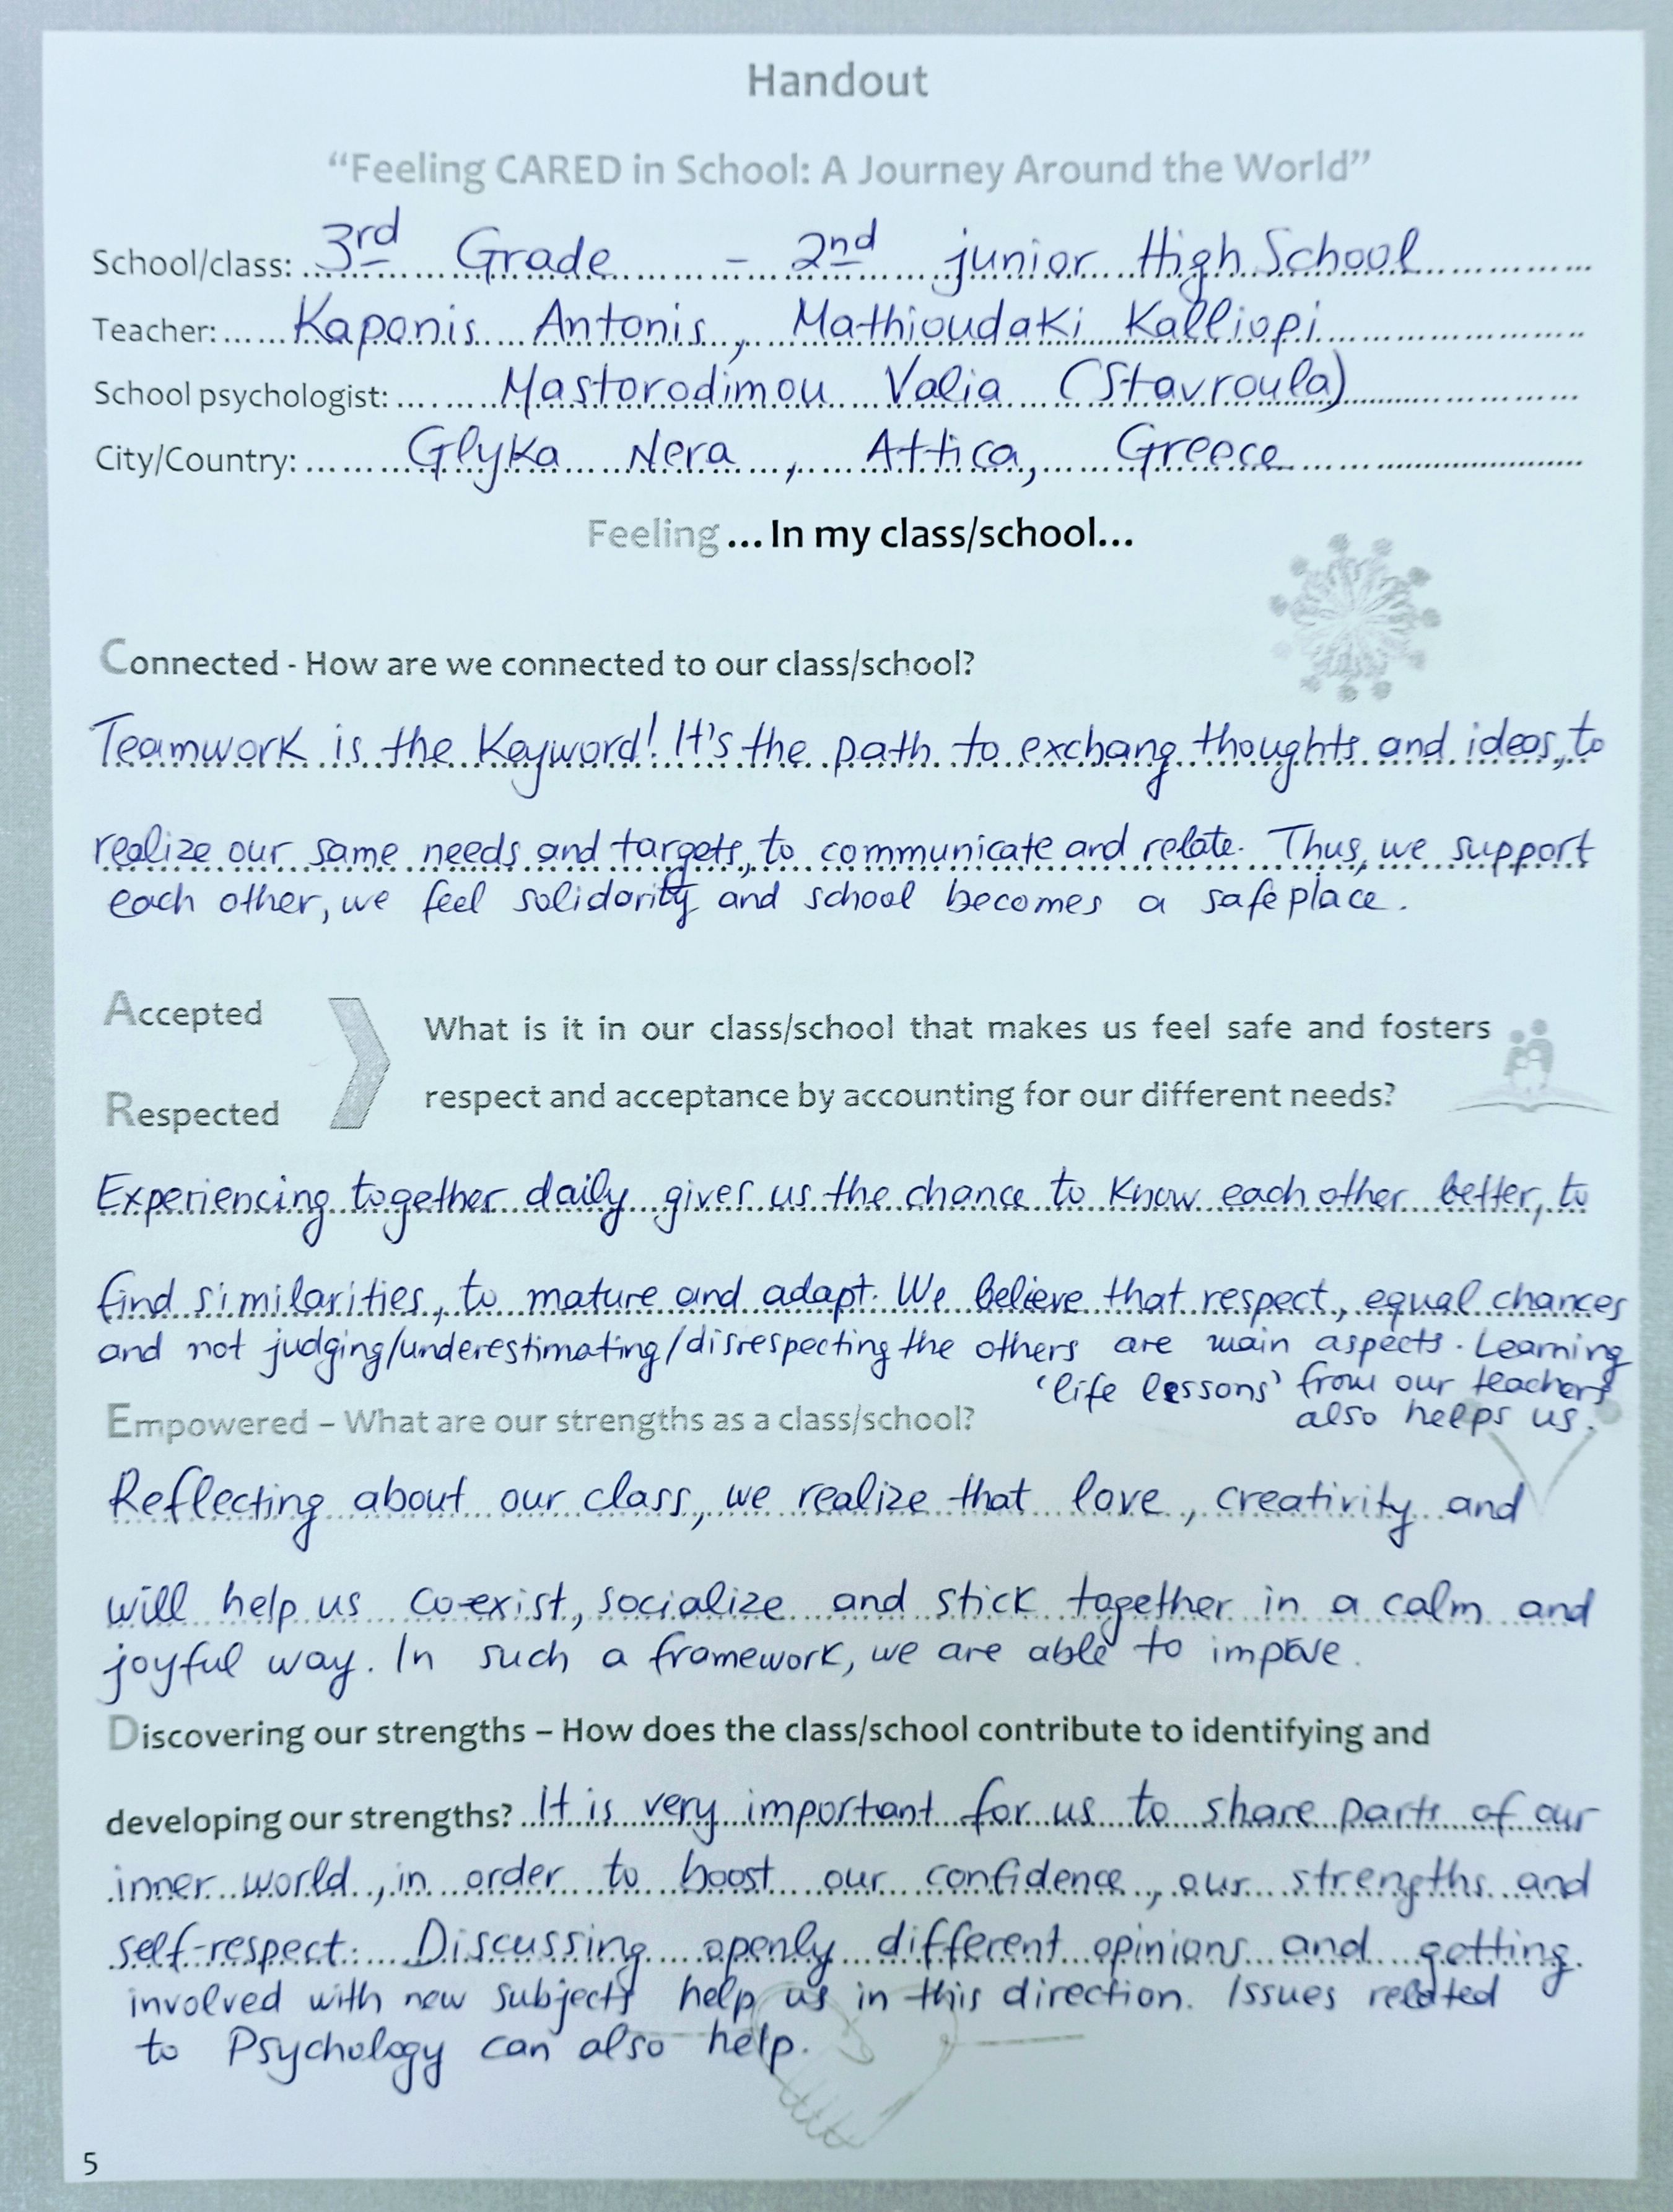 Handout
“Feeling CARED in School: A Journey Around the World”
School/class: 3rd Grade - 2nd junior High School
Teacher: Kaponis Antonis, Mathioudaki Kalliopi
School psychologist: Mastorodimou Valia (Stavroula)
City/Country: Glyka Nera, Attica, Greece
Feeling ... In my class/school...
Connected - How are we connected to our class/school?
Teamwork is the keyword! It's the path to exchang thoughts and ideas, to
realize our same needs and targets, to communicate and relate. Thus, we support
each other, we feel solidarity and school becomes a safe place.
Accepted
Respected
What is it in our class/school that makes us feel safe and fosters
respect and acceptance by accounting for our different needs?
Experiencing together daily gives us the chance to know each other better, to
find similarities, to mature and adapt. We believe that respect, equal chances
and not judging/underestimating/disrespecting the others are main aspects. Learning
‘life lessons’ from our teachers
also helps us.
Empowered – What are our strengths as a class/school?
Reflecting about our class, we realize that love, creativity and
will help us co-exist, socialize and stick together in a calm and
joyful way. In such a framework, we are able to impove.
Discovering our strengths – How does the class/school contribute to identifying and
developing our strengths? It is very important for us to share parts of our
inner world, in order to boost our confidence, our strengths and
self-respect. Discussing openly different opinions and getting
involved with new subjects help us in this direction. Issues related
to Psychology can also help.
5